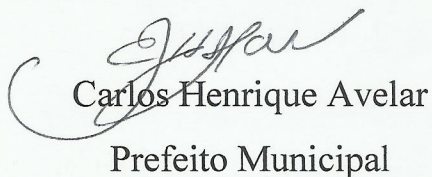 Carlos Henrique Avelar
Prefeito Municipal